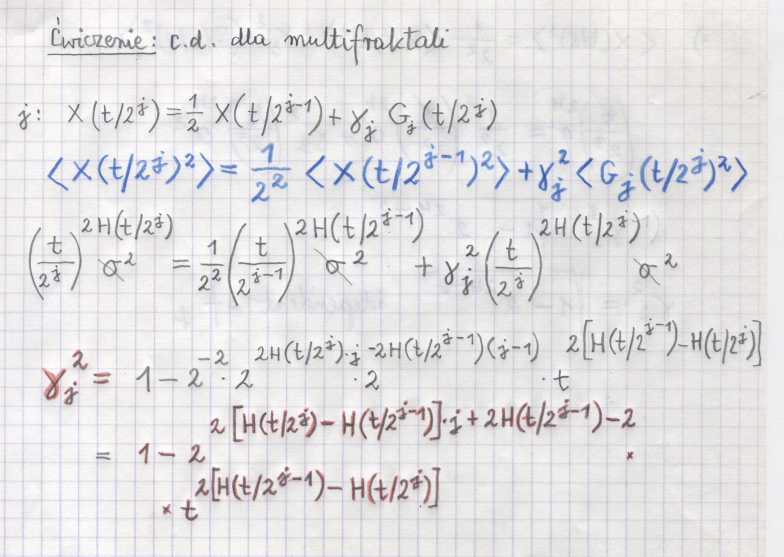 Ćwiczenie: c.d. dla multifraktali
j: X(t/2^j) = 1/2 X(t/2^{j-1}) + γ_j G_j(t/2^j)
⟨X(t/2^j)^2⟩ = 1/2^2 ⟨X(t/2^{j-1})^2⟩ + γ_j^2 ⟨G_j(t/2^j)^2⟩
(t/2^j)^{2H(t/2^j)} σ^2 = 1/2^2 (t/2^{j-1})^{2H(t/2^{j-1})} σ^2 + γ_j^2 (t/2^j)^{2H(t/2^j)} σ^2
γ_j^2 = 1 - 2^{-2} · 2^{2H(t/2^j)·j} · 2^{-2H(t/2^{j-1})(j-1)} · t^{2[H(t/2^{j-1})-H(t/2^j)]}
= 1 - 2^{2[H(t/2^j)-H(t/2^{j-1})]·j+2H(t/2^{j-1})-2} ×
× t^{2[H(t/2^{j-1})-H(t/2^j)]}